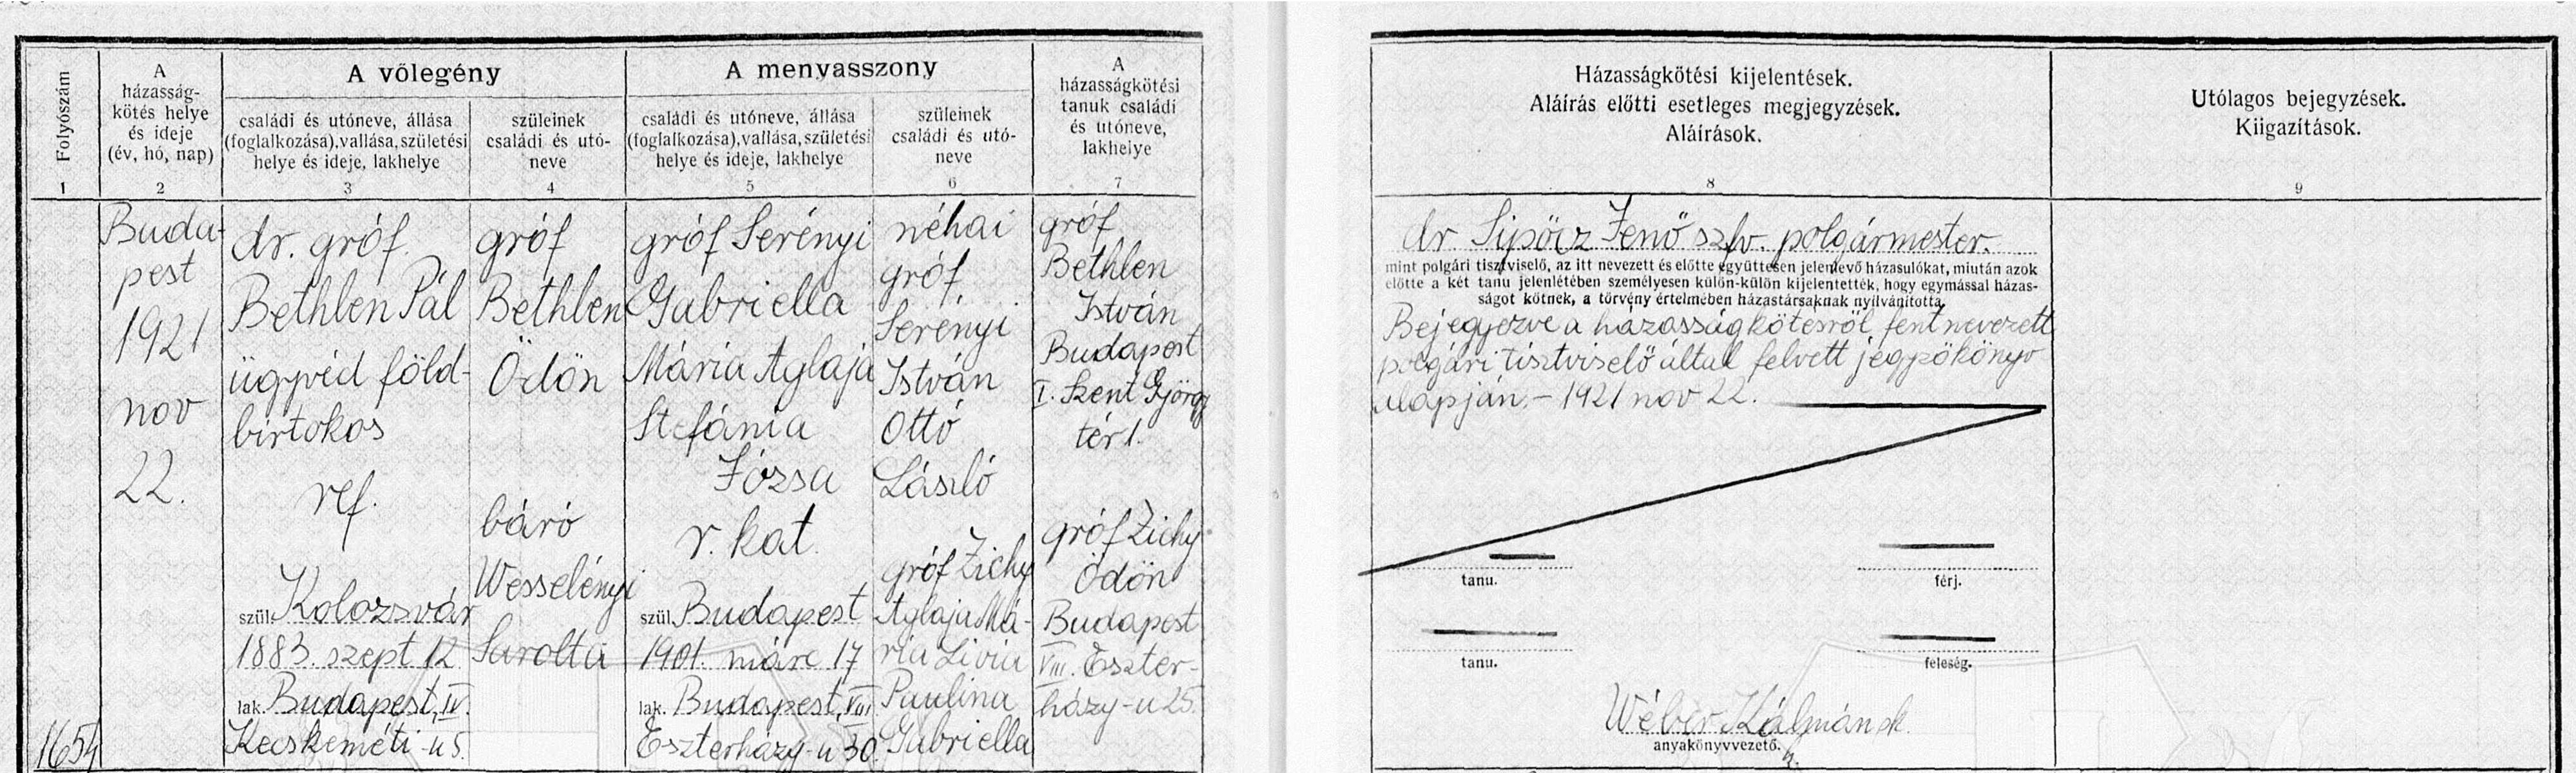 Folyószám
1
A
házasság-
kötés helye
és ideje
(év, hó, nap)
2
A vőlegény
családi és utóneve, állása
(foglalkozása), vallása, születési
helye és ideje, lakhelye
3
szüleinek
családi és utó-
neve
4
A menyasszony
családi és utóneve, állása
(foglalkozása), vallása, születési
helye és ideje, lakhelye
5
szüleinek
családi és utó-
neve
6
A
házasságkötési
tanuk családi
és utóneve,
lakhelye
7
Házasságkötési kijelentések.
Aláírás előtti esetleges megjegyzések.
Aláírások.
8
Utólagos bejegyzések.
Kiigazítások.
9
1654
Buda-
pest
1921
nov
22.
dr. gróf
Bethlen Pál
ügyvéd föld-
birtokos
ref.
szül. Kolozsvár
1883. szept 12
lak. Budapest, IV.
Kecskeméti-u 5.
gróf
Bethlen
Ödön
báró
Wesselényi
Sarolta
gróf Serényi
Gabriella
Mária Aglaja
Stefánia
Józsa
r. kat.
szül. Budapest
1901. márc 17
lak. Budapest, VIII
Eszterházy-u 30.
néhai
gróf
Serényi
István
Ottó
László
gróf Zichy
Aglaja Má-
ria Livia
Paulina
Gabriella
gróf
Bethlen
István
Budapest
I. Szent György
tér 1.
gróf Zichy
Ödön
Budapest
VIII. Eszter-
házy-u 25.
dr Sipőcz Jenő szfv. polgármester.
mint polgári tisztviselő, az itt nevezett és előtte együttesen jelenlevő házasulókat, miután azok
előtte a két tanu jelenlétében személyesen külön-külön kijelentették, hogy egymással házas-
ságot kötnek, a törvény értelmében házastársaknak nyilvánította.
Bejegyezve a házasságkötésről fent nevezett
polgári tisztviselő által felvett jegyzőkönyv
alapján. – 1921 nov 22.
tanu.
férj.
tanu.
feleség.
Wéber Kálmán sk.
anyakönyvvezető.